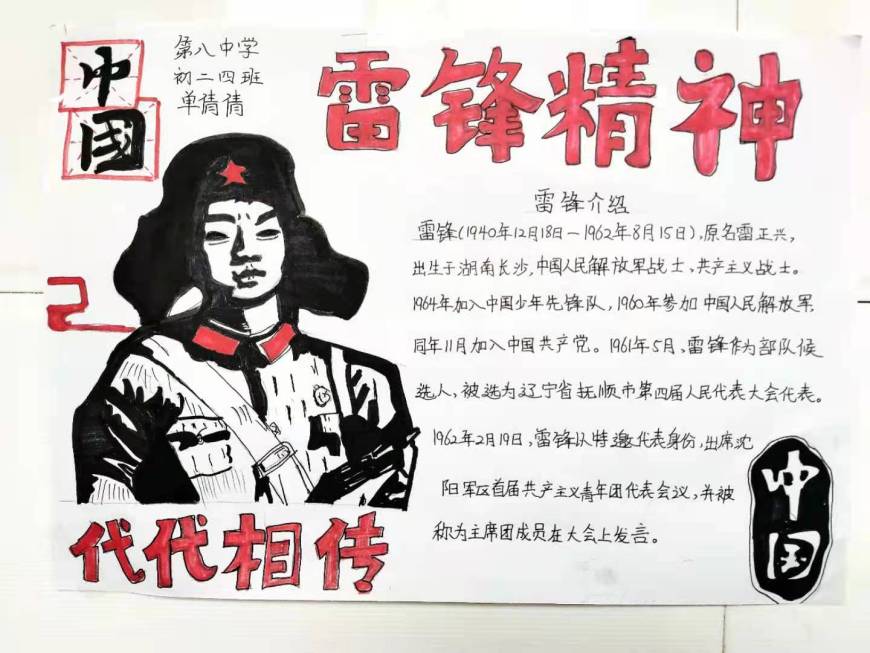 中
国
第八中学
初二四班
单倩倩
雷锋精神
雷锋介绍
雷锋(1940年12月18日—1962年8月15日),原名雷正兴,
出生于湖南长沙,中国人民解放军战士、共产主义战士。
1964年加入中国少年先锋队,1960年参加中国人民解放军,
同年11月加入中国共产党。1961年5月,雷锋作为部队候
选人,被选为辽宁省抚顺市第四届人民代表大会代表。
1962年2月19日,雷锋以特邀代表身份,出席沈
阳军区首届共产主义青年团代表会议,并被
称为主席团成员在大会上发言。
代代相传
中
国